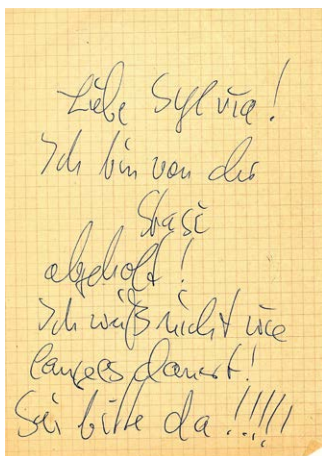 Liebe Sylvia!
Ich bin von der
Stasi
abgeholt!
Ich weiß nicht wie
lange es dauert!
Sei bitte da!!!!!